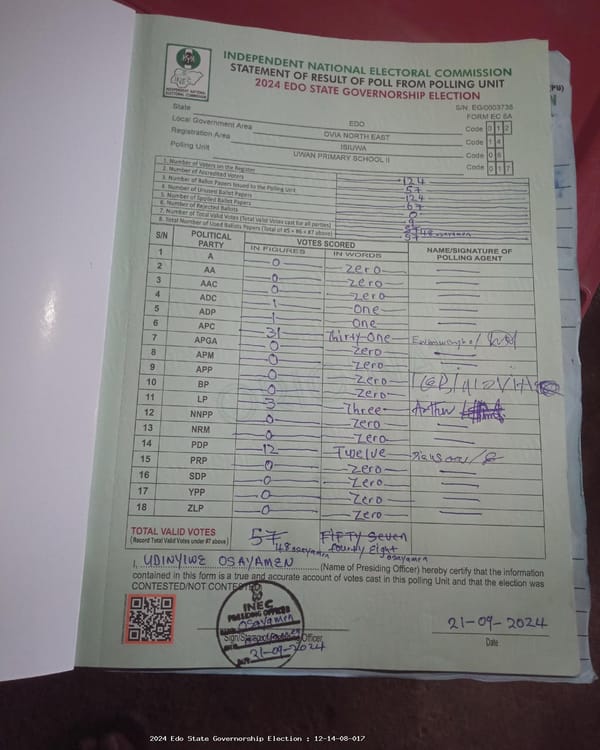 INDEPENDENT NATIONAL ELECTORAL COMMISSION
STATEMENT OF RESULT OF POLL FROM POLLING UNIT
2024 EDO STATE GOVERNORSHIP ELECTION
INEC
INDEPENDENT NATIONAL ELECTORAL COMMISSION
(PU)
S/N: EG/0003738
FORM EC 8A
State EDO Code 0 1 2
Local Government Area OVIA NORTH EAST Code 1 4
Registration Area ISIUWA Code 0 8
Polling Unit UWAN PRIMARY SCHOOL II Code 0 1 7
1. Number of Voters on the Register 124
2. Number of Accredited Voters 57
3. Number of Ballot Papers Issued to the Polling Unit 124
4. Number of Unused Ballot Papers 67
5. Number of Spoiled Ballot Papers 0
6. Number of Rejected Ballots 9
7. Number of Total Valid Votes (Total Valid Votes cast for all parties) 48 osayamen
8. Total Number of Used Ballots Papers (Total of #5 + #6 + #7 above) 57
S/N POLITICAL PARTY VOTES SCORED NAME/SIGNATURE OF POLLING AGENT
IN FIGURES IN WORDS
1 A 0 Zero
2 AA 0 Zero
3 AAC 0 Zero
4 ADC 1 One
5 ADP 1 One
6 APC 31 Thirty One
7 APGA 0 Zero
8 APM 0 Zero
9 APP 0 Zero
10 BP 0 Zero
11 LP 3 Three
12 NNPP 0 Zero
13 NRM 0 Zero
14 PDP 12 Twelve
15 PRP 0 Zero
16 SDP 0 Zero
17 YPP 0 Zero
18 ZLP 0 Zero
TOTAL VALID VOTES 57 FIFTY Seven
(Record Total Valid Votes under #7 above) 48 osayamen fourty Eight osayamen
I, UDINYIWE OSAYAMEN (Name of Presiding Officer) hereby certify that the information
contained in this form is a true and accurate account of votes cast in this polling Unit and that the election was
CONTESTED/NOT CONTESTED
INEC
PRESIDING OFFICER
Osayamen
21-09-2024
21-09-2024
Date
2024 Edo State Governorship Election : 12-14-08-017